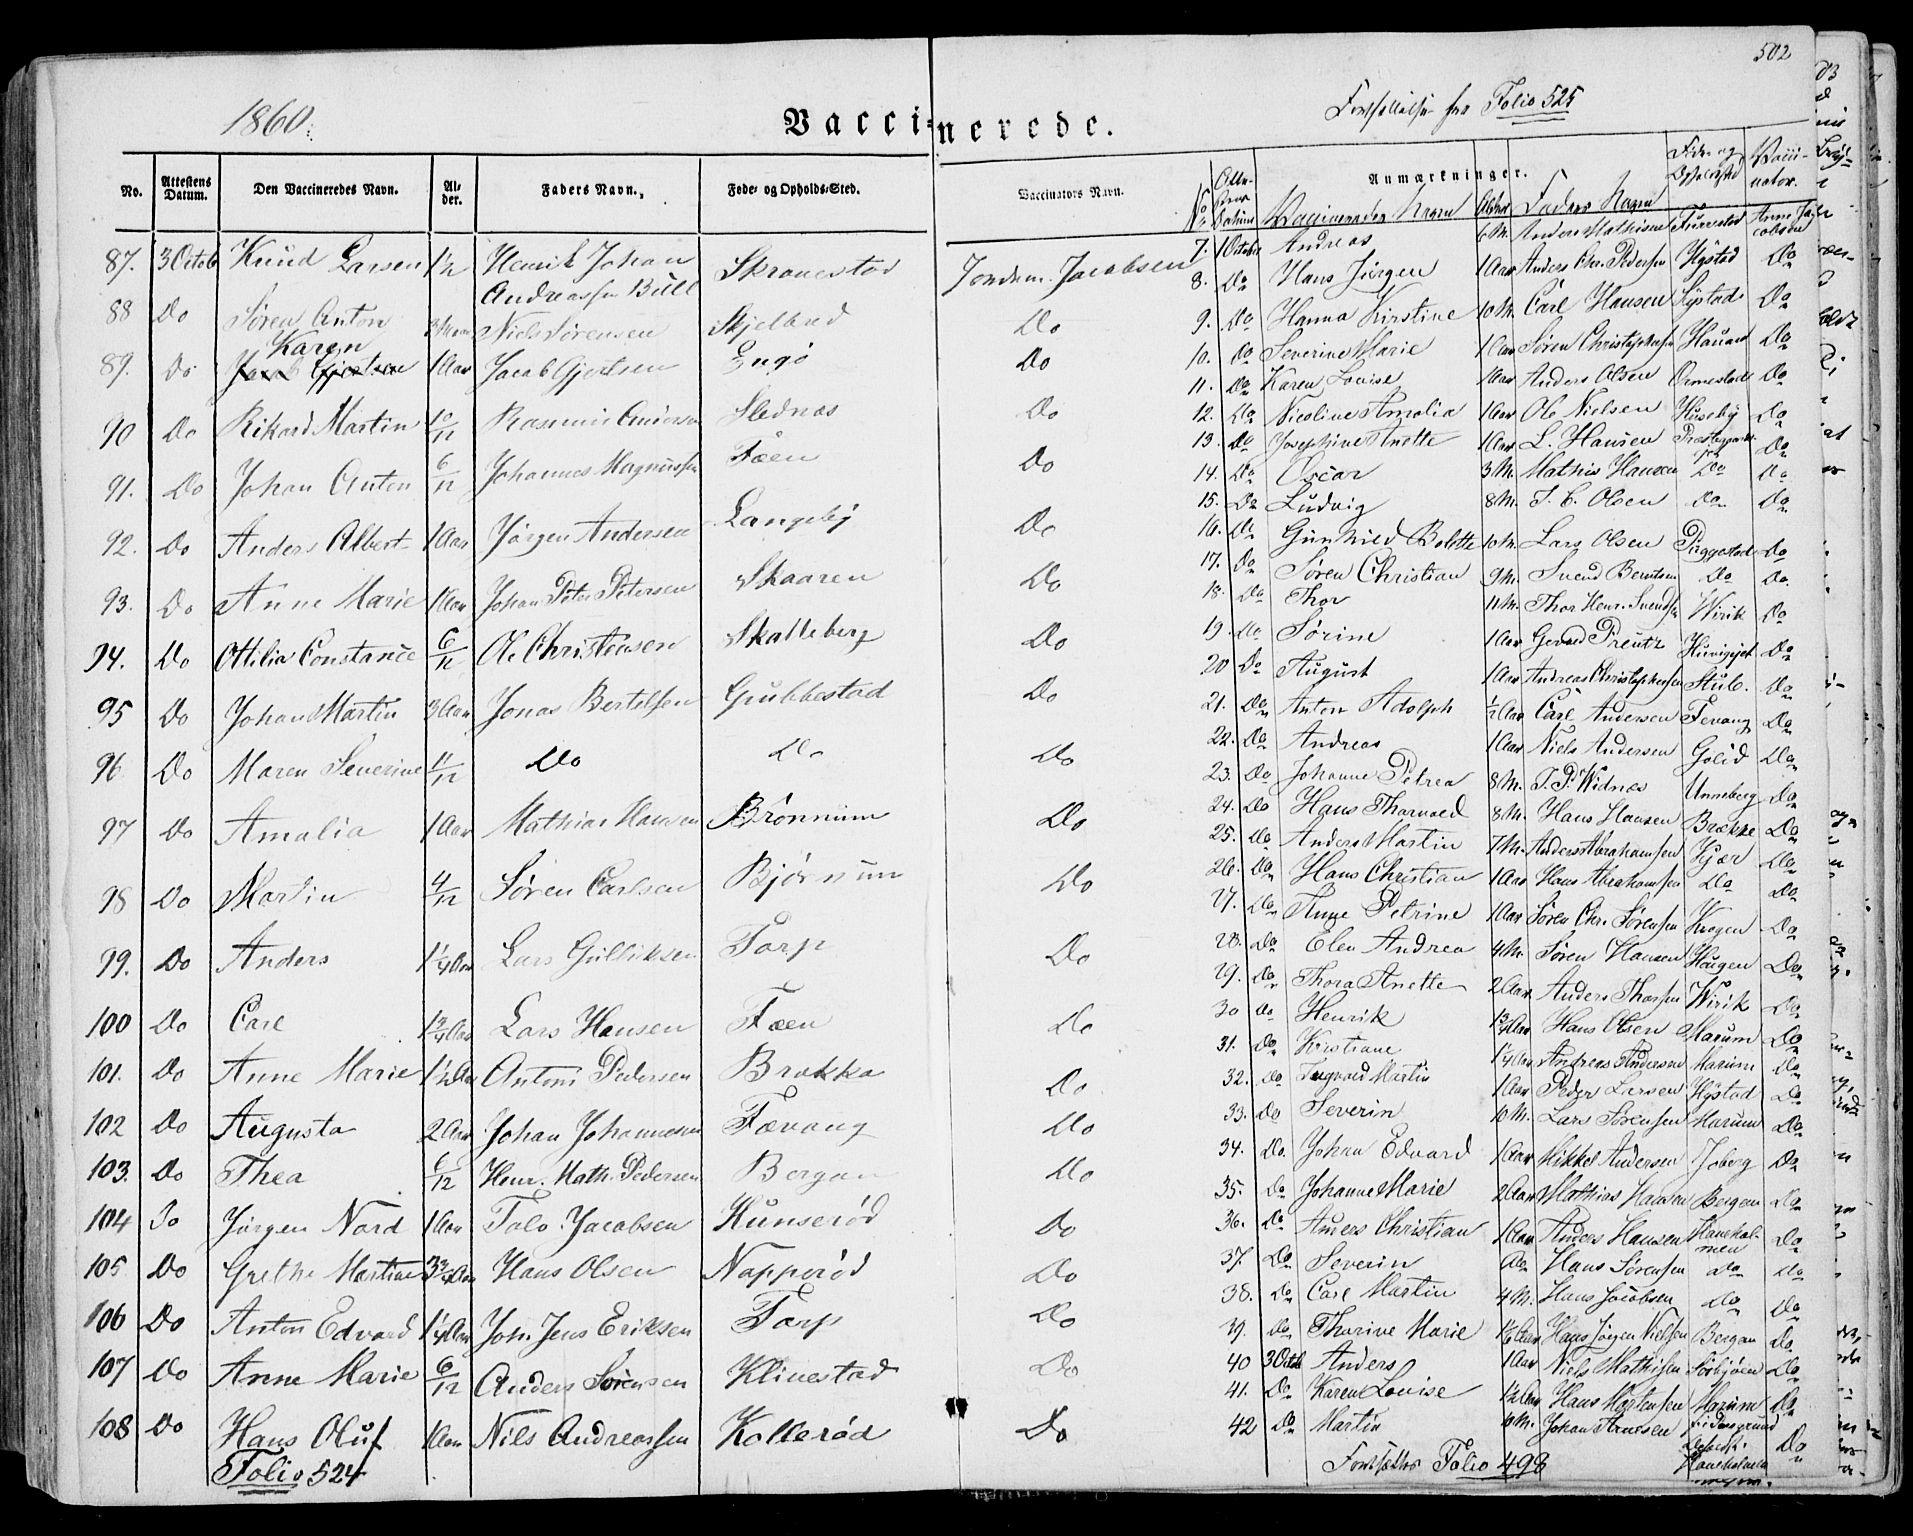 502
1860.
Vaccinerede.
Fortsættelse fra Folio 525
No. Attestens Datum. Den Vaccineredes Navn. Alder. Faders Navn. Føde- og Opholds-Sted. Vaccinators Navn. Anmærkninger.
87. 3 Octob Knud Larsen 1½ Henrik Johan Andreassen Bull Skranestad Jordm. Jacobsen
88 Do Søren Anton Niels Sørensen Skjelbred Do
89. Do Karen 1 Aar Jacob Gjertsen Engø Do
90 Do Rikard Martin 10/12 Rasmus Andersen Slednæs Do
91. Do Johan Anton 6/12 Johannes Magnussen Fåen Do
92. Do Anders Albert 1 Aar Jörgen Andersen Langeby Do
93. Do Anne Marie 1 Aar Johan Peter Petersen Skaaren Do
94. Do Ottilia Constance 6/12 Ole Christensen Skatteberg Do
95 Do Johan Martin 3 Aar Jonas Bertelsen Grubbestad Do
96 Do Maren Severine 11/12 Do Do Do
97 Do Amalia 1 Aar Mathias Hansen Brönnum Do
98 Do Martin 4/12 Sören Carlsen Bjørnum Do
99. Do Anders 1¼ Aar Lars Gulliksen Torp Do
100 Do Carl 1¾ Aar Lars Hansen Fåen Do
101. Do Anne Marie 1½ Aar Anton Pedersen Brække Do
102 Do Augusta 2 Aar Johan Johannesen Fævang Do
103. Do Thea 6/12 Henr. Math. Pedersen Bergan Do
104 Do Jürgen Nord 1 Aar Tolo Jacobsen Hunserød Do
105 Do Grethe Martine 3¾ Aar Hans Olsen Napperød Do
106 Do Anton Edvard 1¼ Aar Joh. Jens Eriksen Torp Do
107 Do Anne Marie 6/12 Anders Sörensen Klinestad Do
108 Do Hans Oluf 1 Aar Nils Andreassen Kollerød Do
Folio 524
No Datum Vaccineredes Navn Alder Faders Navn Vaccinator.
7. 1 October Andreas 6 M. Anders Mathisen Furestad Anne Jacobsen
8. Do Hans Jürgen 1 Aar Anders Chr. Pedersen Hystad Do
9. Do Hanna Kirstine 10 M. Carl Hansen Hystad Do
10. Do Severine Marie 1 Aar Søren Christophersen Do
11. Do Karen Louise 1 Aar Anders Olsen Ormestad Do
12. Do Nicoline Amalia 1 Aar Ole Nielsen Huseby Do
13. Do Josephine Anette 1 Aar L. Hansen Do
14. Do Oscar 3 M. Mathis Hansen Do Do
15. Do Ludvig 8 M. Olsen Do Do
16. Do Gunhild Bolette 10 M. Lars Olsen Do
17. Do Søren Christian 9 M. Svend Berntsen Do Do
18. Do Thor 11 M. Thor Henr. Svendsen Wirik Do
19. Do Sørine 1 Aar Do
20 Do August 1 Aar Andreas Christophersen Stub. Do
21. Do Anton Adolph ½ Aar Carl Andersen Fevang Do
22. Do Andreas 1 Aar Niels Andersen Do
23. Do Johanne Petrea 8 M. Widnes Unneberg Do
24. Do Hans Thorvald 8 M. Hans Hansen Brække Do
25. Do Anders Martin 7 M. Anders Abrahamsen Kjær Do
26. Do Hans Christian 1 Aar Hans Abrahamsen Do Do
27. Do Anne Petrine 1 Aar Søren Chr. Sørensen Krogen Do
28. Do Elen Andrea 4 M. Søren Hansen Haugen Do
29. Do Thora Anette 2 Aar Anders Thorsen Wirik Do
30 Do Henrik 1¾ Aar Hans Olsen Marum Do
31. Do Kristiane 1¼ Aar Andreas Andersen Marum Do
32. Do Ingvald Martin 1 Aar Peder Larsen Hystad Do
33. Do Severin 10 M. Lars Sørensen Marum Do
34. Do Johan Edvard 1 Aar Mikkel Andersen Joberg Do
35. Do Johanne Marie 2 Aar Mathias Hansen Bergan Do
36. Do Anders Christian 1 Aar Anders Hansen Haneholmen Do
37. Do Severin Do Hans Sørensen Do Do
38. Do Carl Martin 4 M. Hans Jacobsen Do Do
39. Do Thorine Marie Hans Jørgen Nielsen Bergan Do
40 3 Octob Anders 1 Aar Niels Mathisen Do
41. Do Karen Louise 1½ Aar Hans Mortensen Marum Do
42 Do Martin 10 M. Johan Arnesen Do
Fortsættes Folio 498